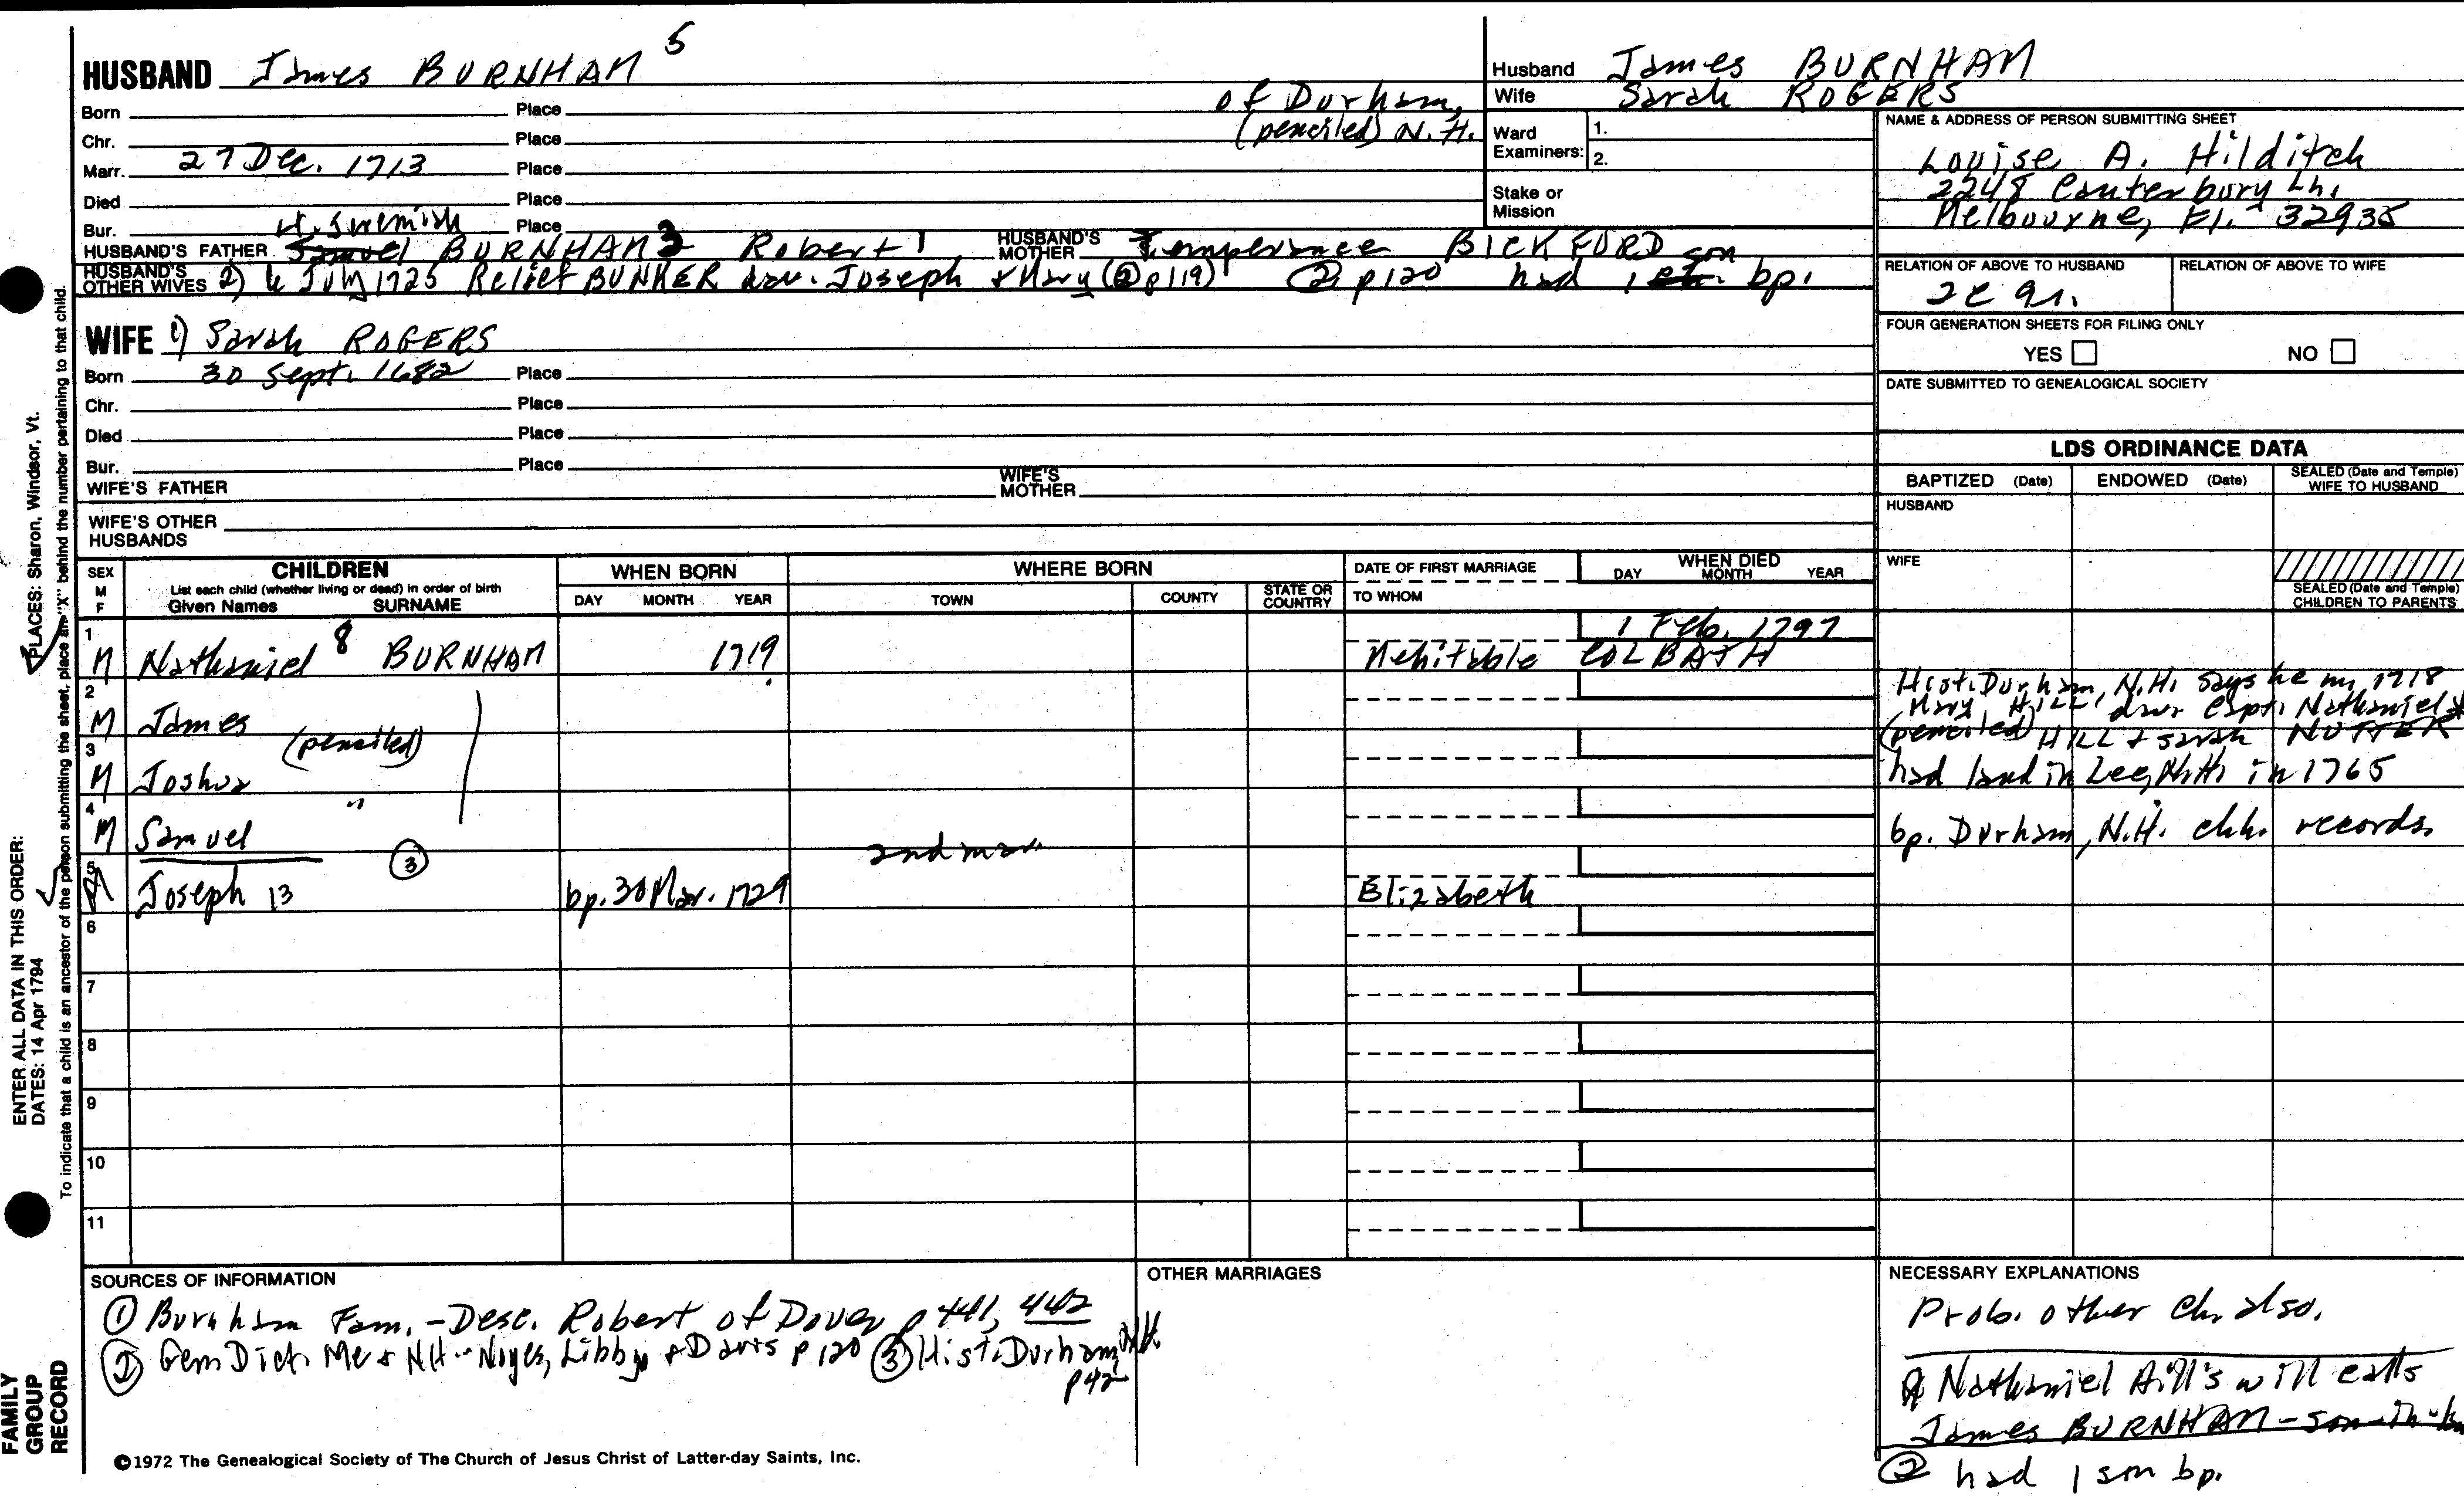 HUSBAND James BURNHAM 5
Born Place of Durham,
Chr. Place (penciled) N. H.
Marr. 27 Dec. 1713 Place
Died Place
Bur. Place
HUSBAND'S FATHER Samuel Jeremiah BURNHAM 3 Robert 1 HUSBAND'S MOTHER Temperance BICKFORD
HUSBAND'S OTHER WIVES 2) 6 July 1725 Relief BUNKER dau. Joseph + Mary (② p 119) ② p 120 had 1 ch. son bp.
WIFE 1) Sarah ROGERS
Born 30 Sept. 1682 Place
Chr. Place
Died Place
Bur. Place
WIFE'S FATHER WIFE'S MOTHER
WIFE'S OTHER HUSBANDS
Husband James BURNHAM
Wife Sarah ROGERS
Ward Examiners: 1.
2.
Stake or Mission
NAME & ADDRESS OF PERSON SUBMITTING SHEET
Louise A. Hilditch
2248 Canterbury Ln.
Melbourne, Fl. 32935
RELATION OF ABOVE TO HUSBAND RELATION OF ABOVE TO WIFE
FOUR GENERATION SHEETS FOR FILING ONLY
YES NO
DATE SUBMITTED TO GENEALOGICAL SOCIETY
LDS ORDINANCE DATA
BAPTIZED (Date) ENDOWED (Date) SEALED (Date and Temple) WIFE TO HUSBAND
HUSBAND
WIFE
SEALED (Date and Temple) CHILDREN TO PARENTS
SEX M F
CHILDREN
List each child (whether living or dead) in order of birth
Given Names SURNAME
WHEN BORN
DAY MONTH YEAR
WHERE BORN
TOWN COUNTY STATE OR COUNTRY
DATE OF FIRST MARRIAGE
TO WHOM
WHEN DIED
DAY MONTH YEAR
1 M Nathaniel 8 BURNHAM 1719 Mehitable COLBATH 1 Feb. 1797
2 M James (penciled)
3 M Joshua "
4 M Samuel
③ 2nd mar.
5 M Joseph 13 bp. 30 Mar. 1729 Elizabeth
6
7
8
9
10
11
Hist. Durham, N.H. says he m. 1718
Mary HILL, dau. Capt. Nathaniel
(penciled) HILL + Sarah NUTTER
had land in Lee, N.H. in 1765
bp. Durham, N.H. chh. records.
SOURCES OF INFORMATION
① Burnham Fam. - Desc. Robert of Dover p 441, 442
② Gen Dict. Me + NH - Noyes, Libby + Davis p 120 ③ Hist. Durham, NH
p 42
OTHER MARRIAGES
NECESSARY EXPLANATIONS
Prob. other ch. also.
Nathaniel Hill's will calls
James BURNHAM - son-in-law
② had 1 son bp.
©1972 The Genealogical Society of The Church of Jesus Christ of Latter-day Saints, Inc.
FAMILY GROUP RECORD
ENTER ALL DATA IN THIS ORDER:
DATES: 14 Apr 1794
PLACES: Sharon, Windsor, Vt.
To indicate that a child is an ancestor of the person submitting the sheet, place an "X" behind the number pertaining to that child.